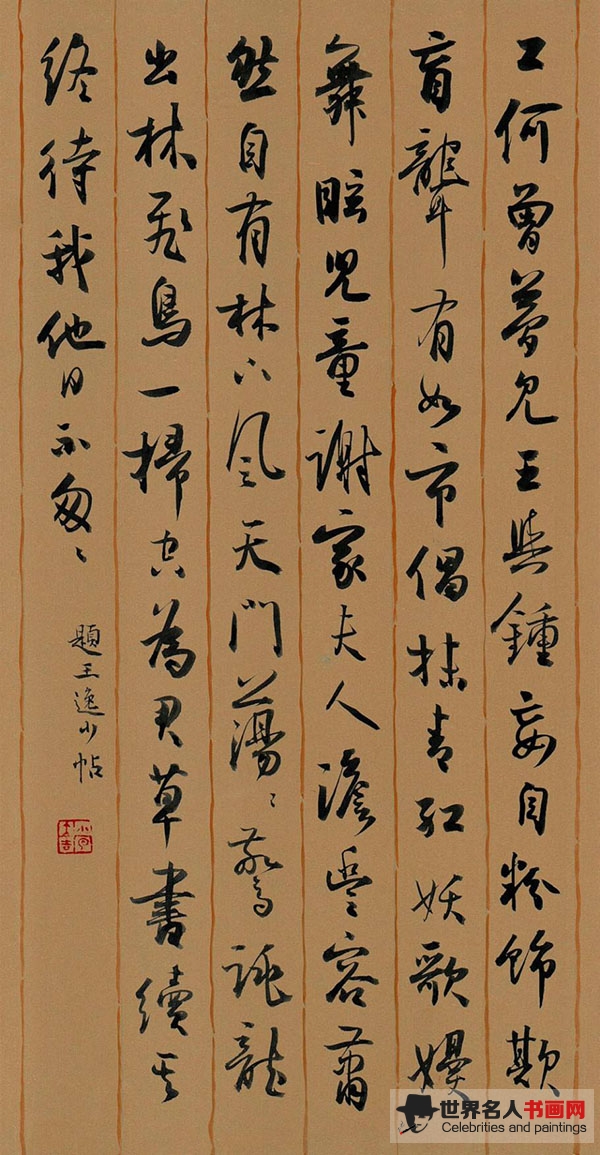 工何曾夢見王與鍾妄自粉飾欺
盲聾有如市倡抹青紅妖歌嫚
舞眩兒童謝家夫人澹豐容蕭
然自有林下風天門蕩々驚跳龍
出林飛鳥一掃空為君草書續其
終待我他日不匆々
題王逸少帖
世界名人书画网
Celebrities and paintings